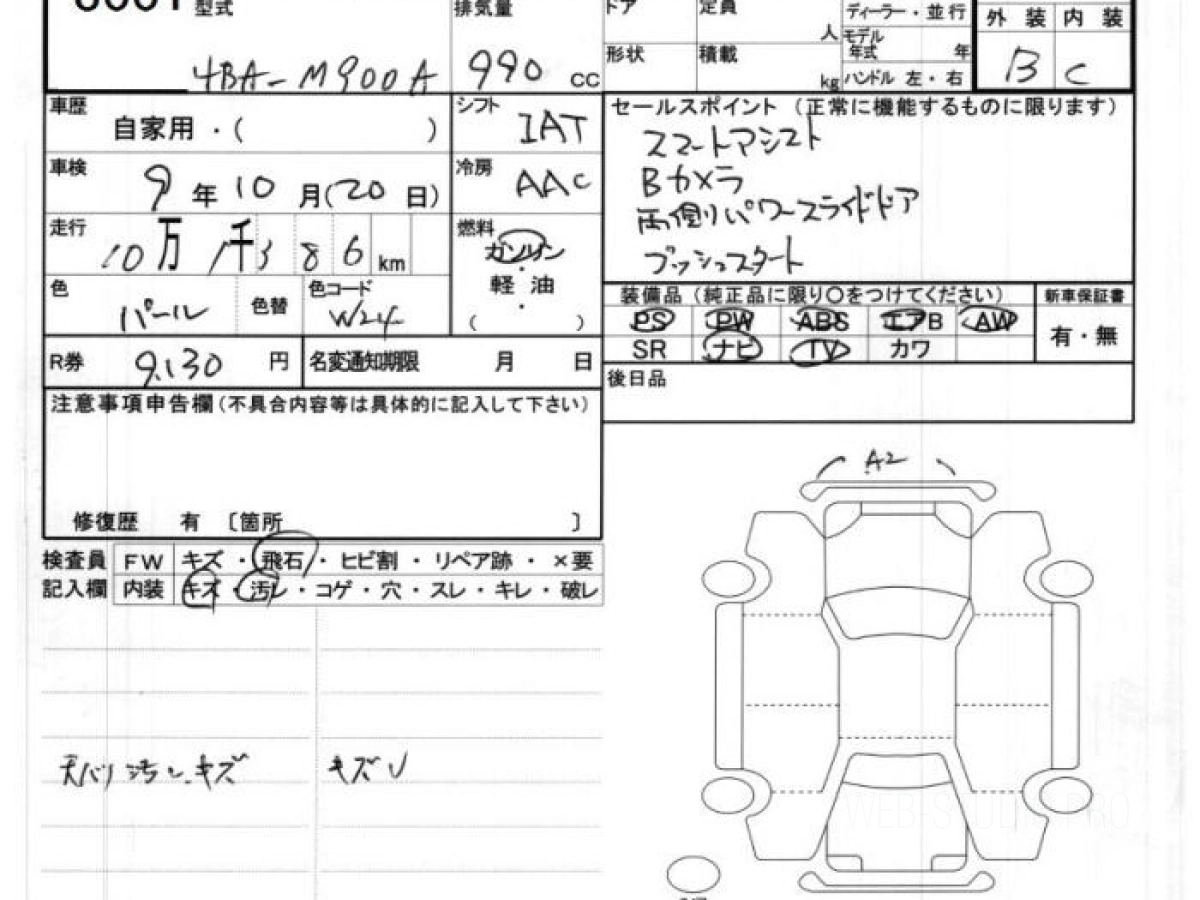 型式 排気量 ドア 定員 人 ディーラー・並行 外装 内装
モデル年式 年
4BA-M900A 990 cc 形状 積載 kg ハンドル 左・右 B C
車歴 自家用・( ) シフト IAT セールスポイント (正常に機能するものに限ります)
スマートアシスト
車検 9年10月(20日) 冷房 AAC
Bカメラ
両側パワースライドドア
走行 10万1千386km 燃料 ガソリン
プッシュスタート
軽油
( ・ )
色 パール 色替 色コード W24
装備品 (純正品に限り〇をつけてください) 新車保証書
PS PW ABS エアB AW
有・無
SR ナビ TV カワ
R券 9,130円 名変通知期限 月 日
後日品
注意事項申告欄(不具合内容等は具体的に記入して下さい)
A2
修復歴 有 〔箇所 〕
検査員 FW キズ・飛石・ヒビ割・リペア跡・×要
記入欄 内装 キズ・汚レ・コゲ・穴・スレ・キレ・破レ
天バリ汚レ、キズ キズU
WEB-STUDIO.PRO